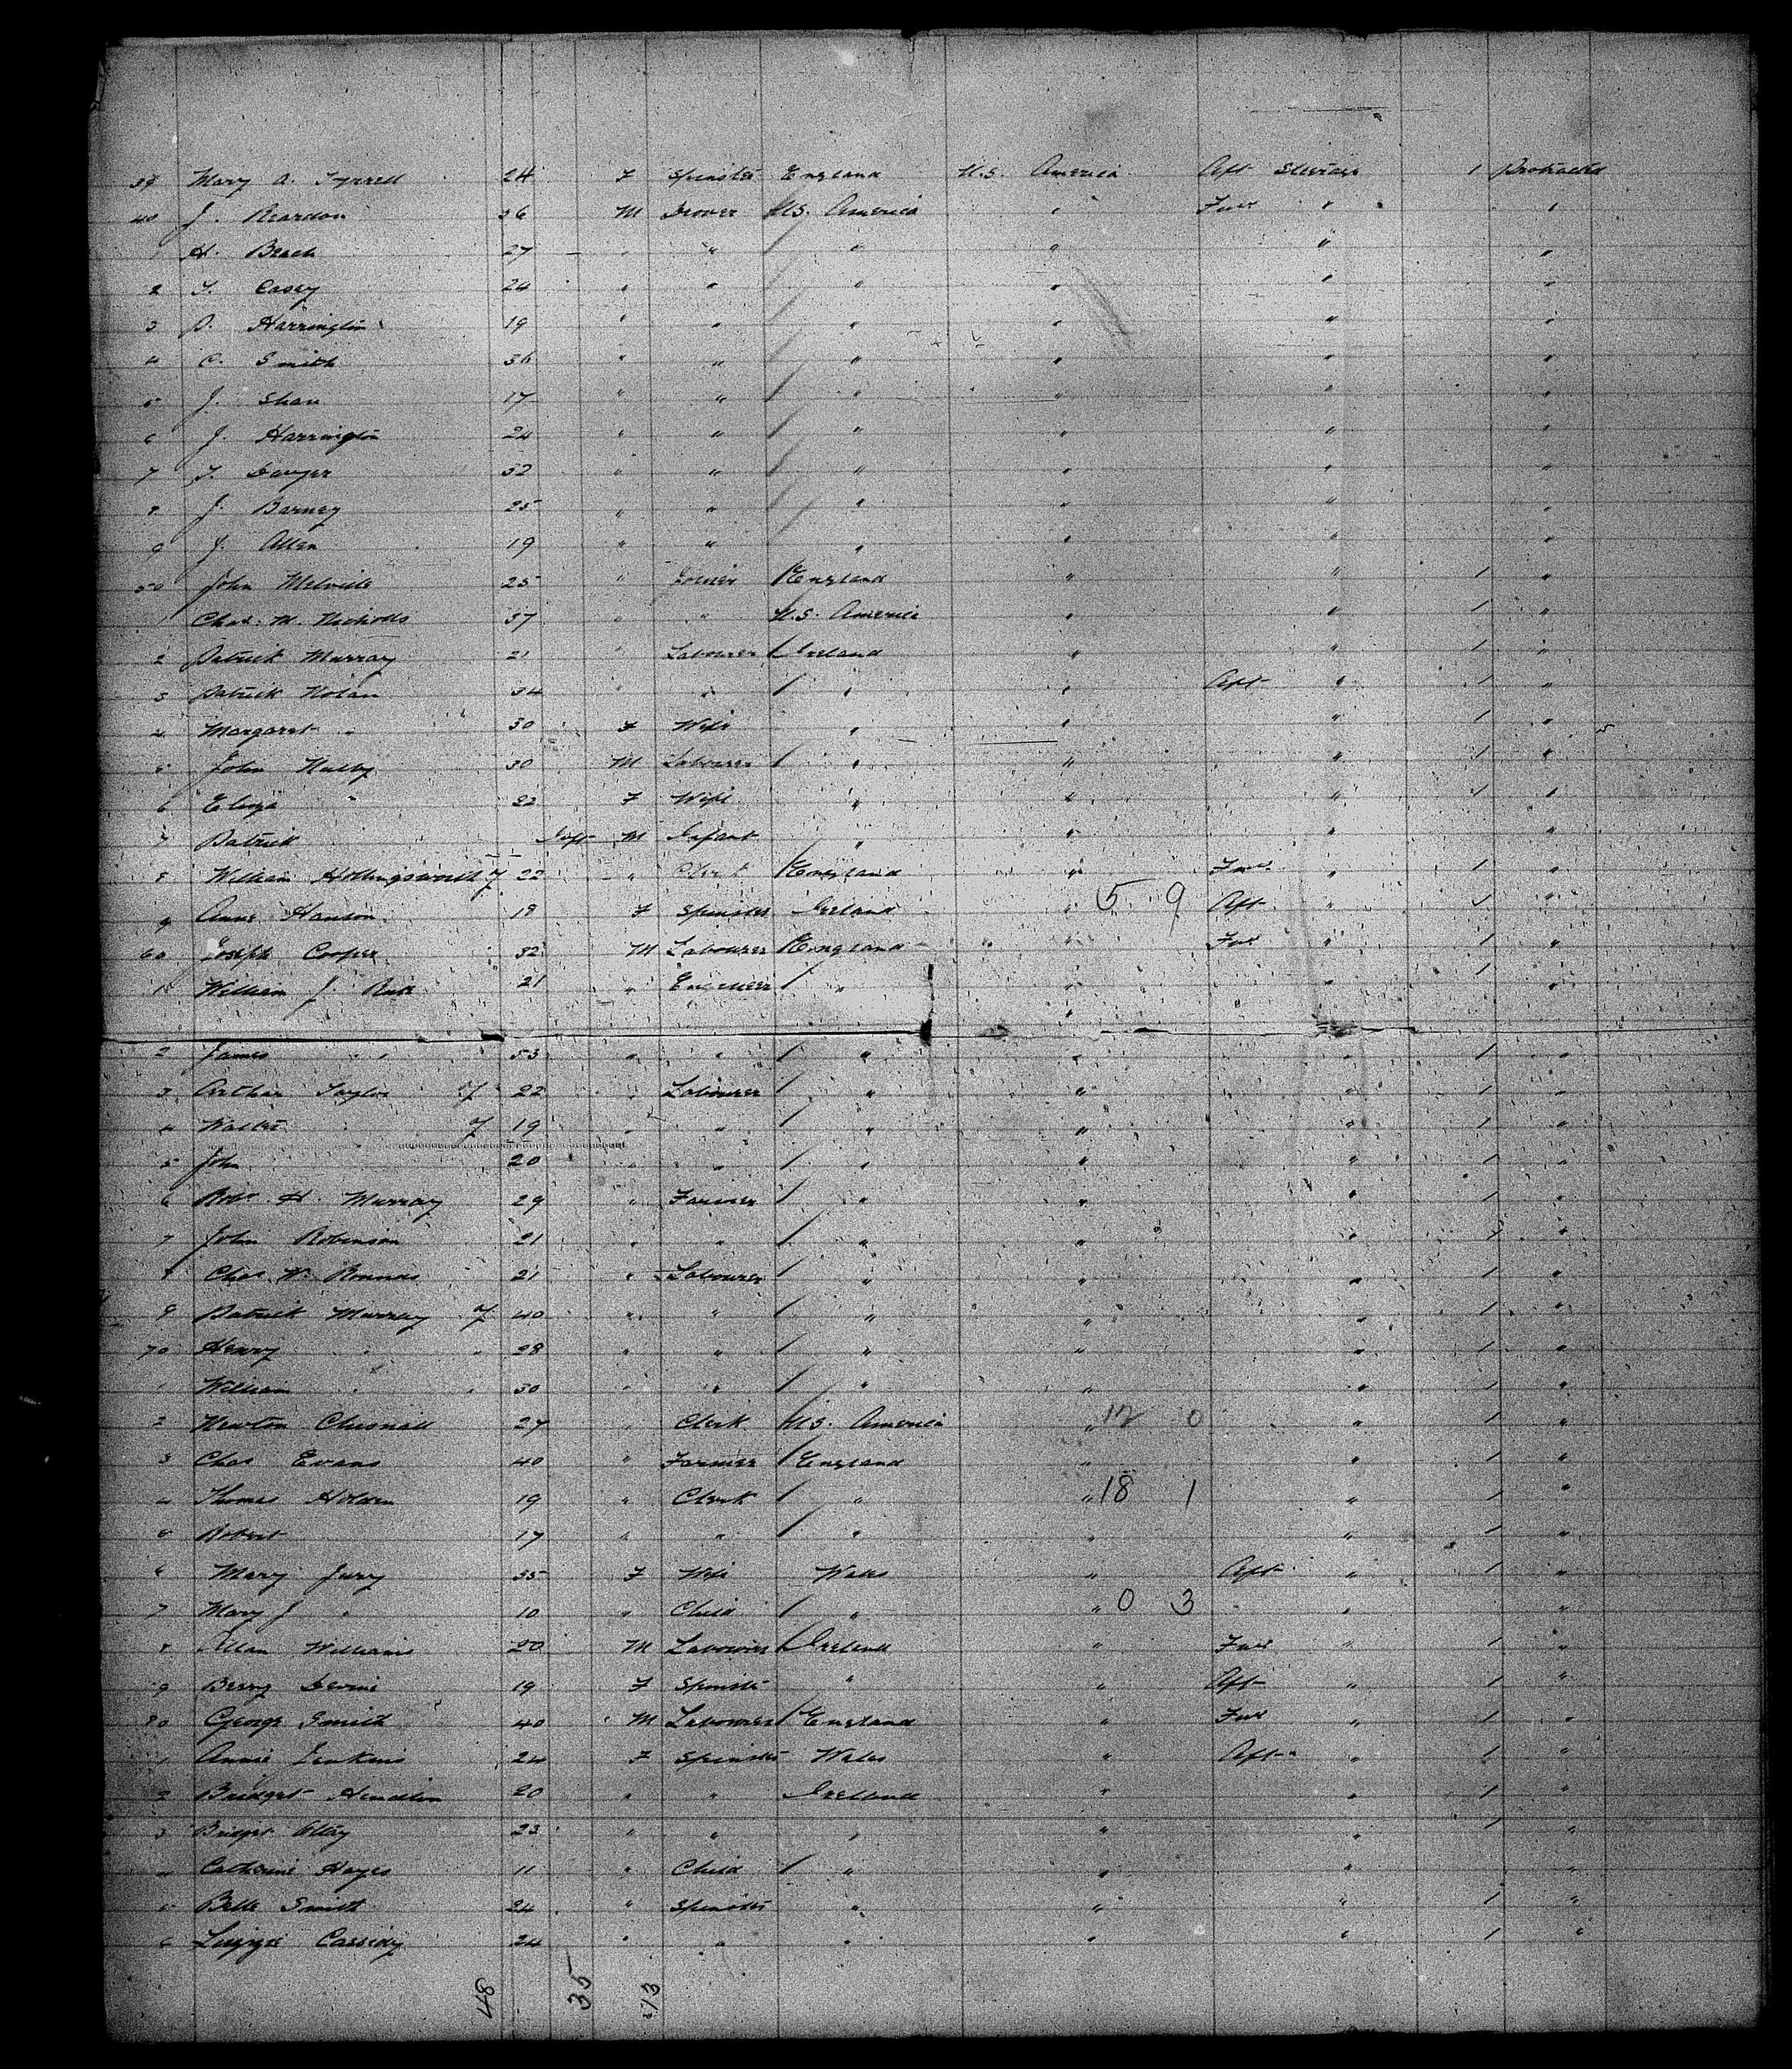 39 Mary A. Tyrrell 24 F Spinster England U.S. America Aft Steerage 1 Protracted
40 J. Reardon 36 M Drover U.S. America " Fwd " "
1 H. Beach 27 " " " " " "
2 T. Casey 24 " " " " " "
3 D. Harrington 19 " " " " " "
4 C. Smith 36 " " " " " "
5 J. Shaw 17 " " " " " "
6 J. Harrington 24 " " " " " "
7 T. Dwyer 32 " " " " " "
8 J. Barney 25 " " " " " "
9 J. Allen 19 " " " " " "
50 John Melville 25 " England " " 1 "
1 Chas. M. Nicholls 37 " " U.S. America " " 1 "
2 Patrick Murray 21 " Labourer Ireland " " 1 "
3 Patrick Nolan 34 " " " " Aft " 1 "
4 Margaret " 30 F Wife " " " 1 "
5 John Nulby 30 M Labourer " " " 1 "
6 Eliza " 22 F Wife " " " 1 "
7 Patrick Inft M Infant " " " "
8 William Hollingsworth 22 " Clerk England " Fwd " 1 "
9 Anne Hanson 18 F Spinster Ireland " 5 9 Aft " 1 "
60 Joseph Cooper 32 M Labourer England " " Fwd " 1 "
1 William J. 21 " Engineer " " " 1 "
2 James " 53 " " " " " 1 "
3 Arthur Taylor 22 " Labourer " " " 1 "
4 Walter " 19 " " " " " 1 "
5 John 20 " " " " " 1 "
6 Robt. H. Murray 29 " Farmer " " " 1 "
7 John Robinson 21 " " " " " 1 "
8 Chas. W. Bounds 21 " Labourer " " " 1 "
9 Patrick Murray 40 " " " " " 1 "
70 Henry " 28 " " " " " 1 "
1 William " 30 " " " " " 1 "
2 Newton Chesnall 27 " Clerk U.S. America " 12 0 " 1 "
3 Chas Evans 40 " Farmer England " " 1 "
4 Thomas Holden 19 " Clerk " " 18 1 " 1 "
5 Robert 17 " " " " " 1 "
6 Mary Jury 35 F Wife Wales " Aft " 1 "
7 Mary J " 10 " Child " " 0 3 " "
8 Allan Williams 20 M Labourer Ireland " Fwd " 1 "
9 Bessy Devine 19 F Spinster " " Aft " 1 "
80 George Smith 40 M Labourer England " Fwd " 1 "
1 Annie Jenkins 24 F Spinster Wales " Aft " 1 "
2 Bridget 20 " " Ireland " " 1 "
3 Bridget 23 " " " " " 1 "
4 Catherine Hayes 11 " Child " " " "
5 Belle Smith 24 " Spinster " " " 1 "
6 Lizzie Cassidy 24 " " " " " 1 "
48 35 13